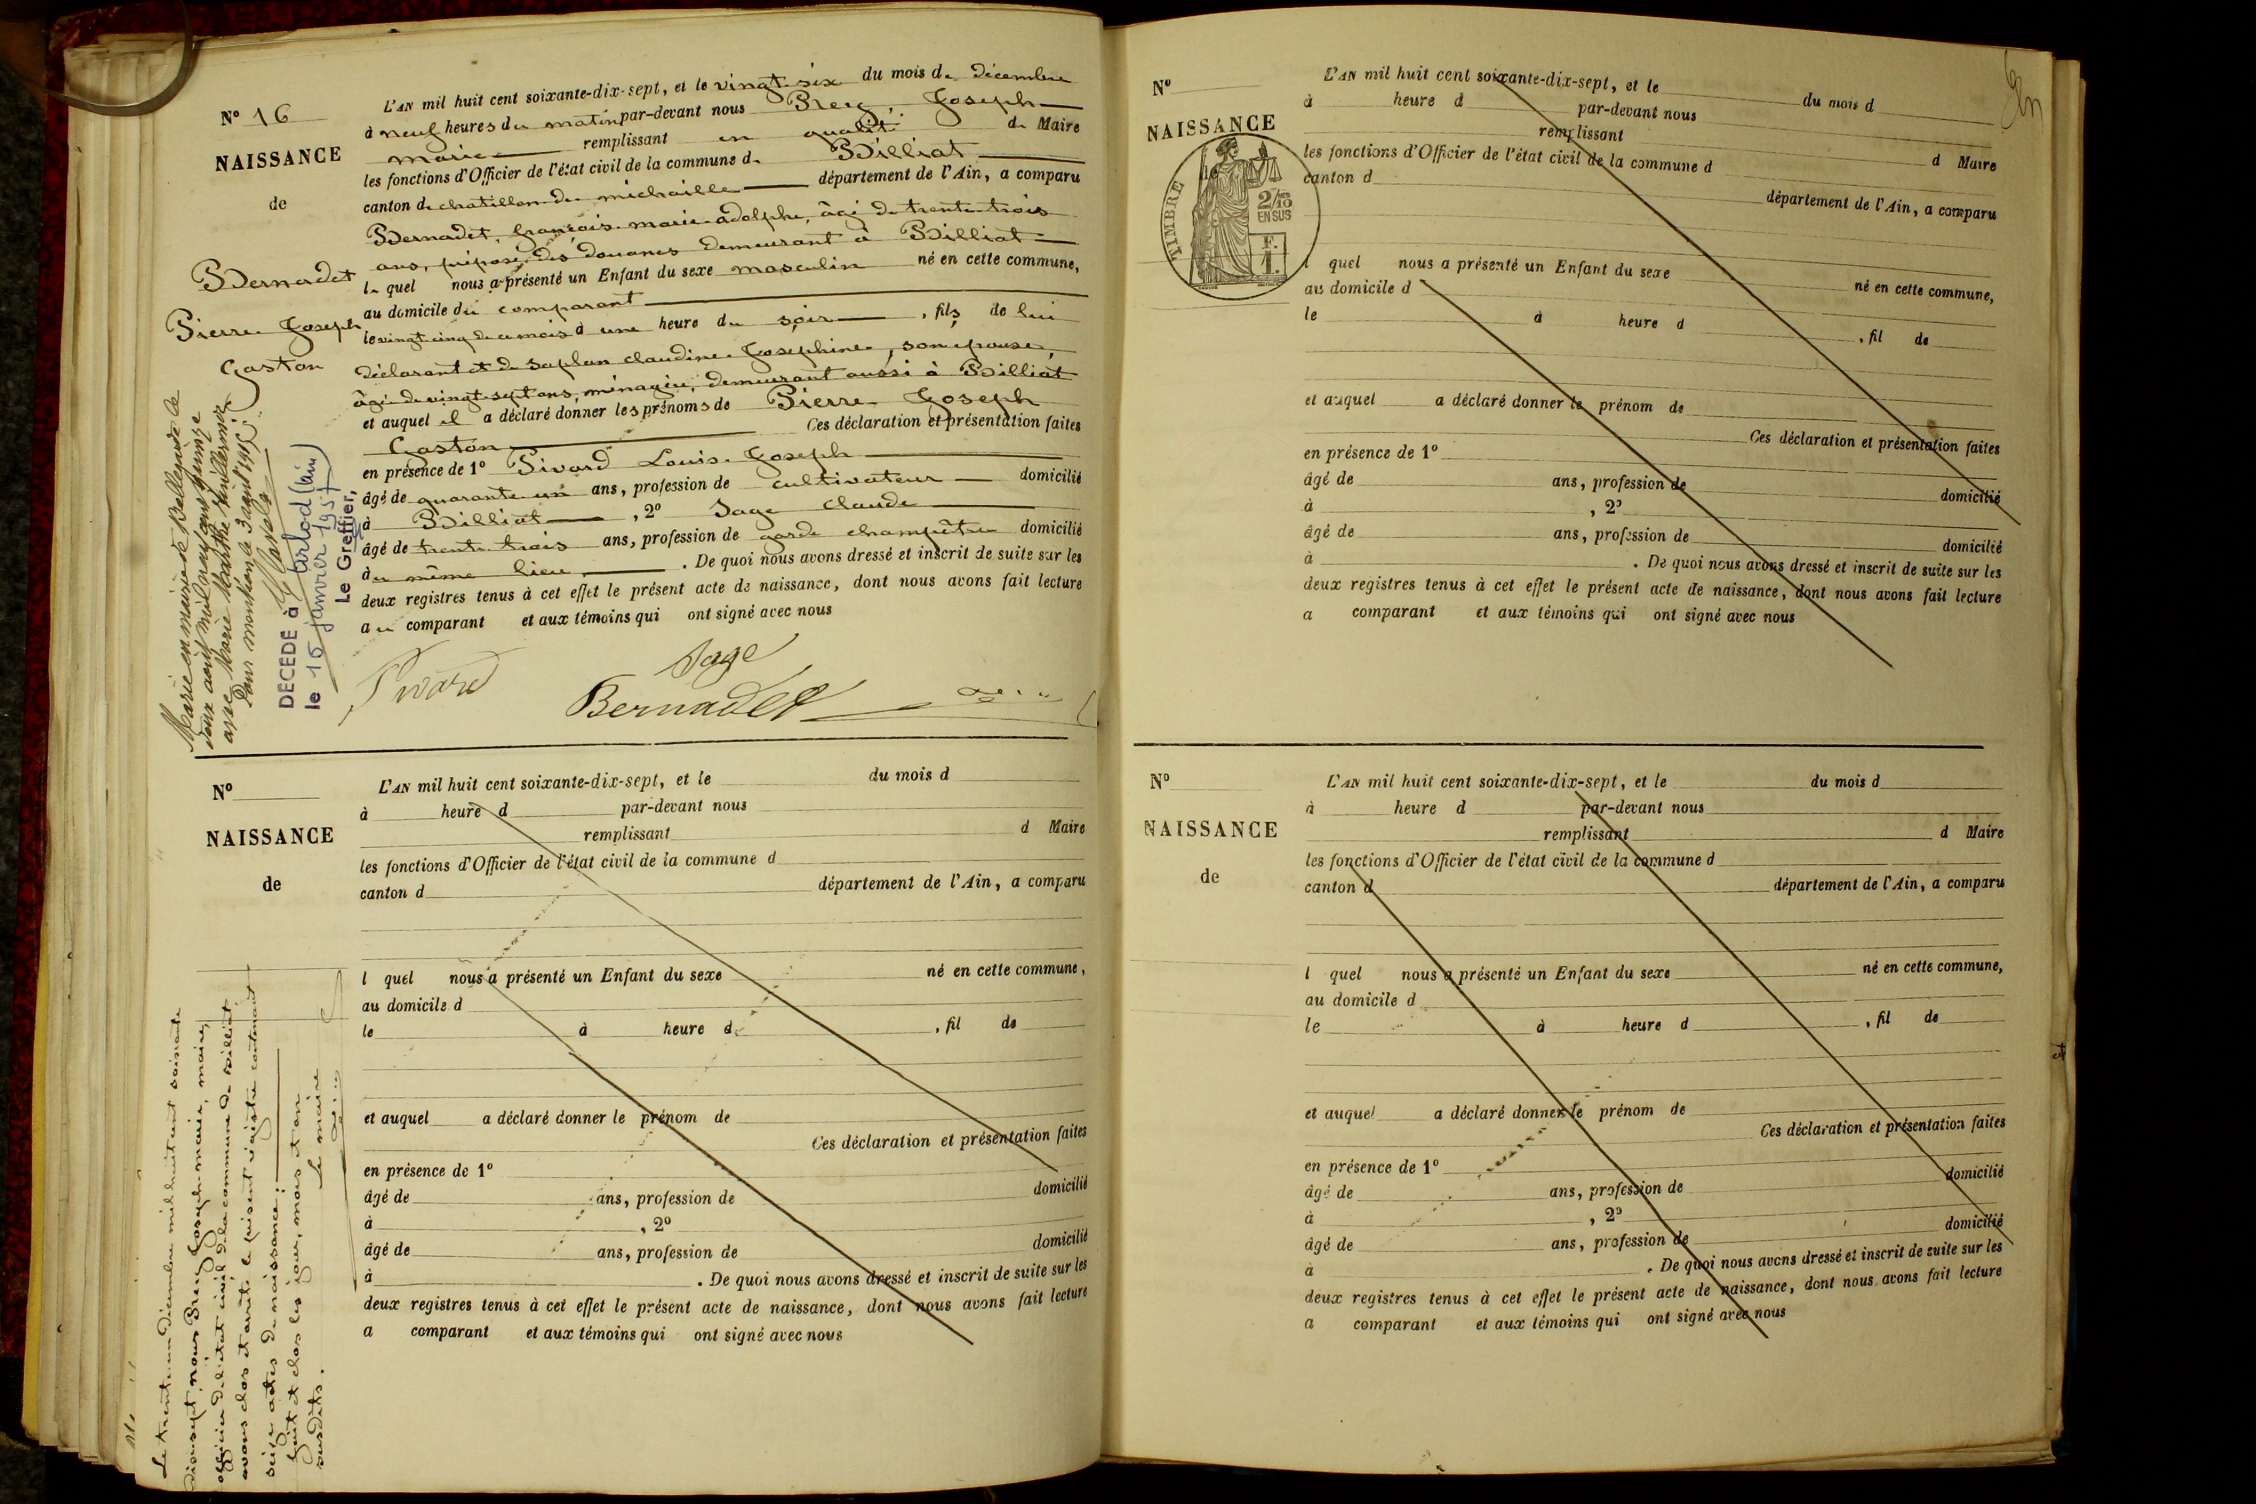 N° 16
NAISSANCE
de
Bernadet
Pierre Joseph
Gaston
L'AN mil huit cent soixante-dix-sept, et le vingt-six du mois de décembre
à neuf heures du matin par-devant nous Brey, Joseph
marie remplissant en qualité de Maire
les fonctions d'Officier de l'état civil de la commune de Billiat
canton de chatillon de michaille département de l'Ain, a comparu
Bernadet, françois marie adolphe, âgé de trente trois
ans, préposé des douanes demeurant à Billiat
le quel nous a présenté un Enfant du sexe masculin né en cette commune,
au domicile du comparant
le vingt cinq de ce mois à une heure du soir, fils de lui
déclarant et de saplan claudine Josephine, son épouse,
âgée de vingt sept ans, ménagère, demeurant aussi à Billiat
et auquel il a déclaré donner les prénoms de Pierre Joseph
Gaston Ces déclaration et présentation faites
en présence de 1° Pivard Louis Joseph
âgé de quarante un ans, profession de cultivateur domicilié
à Billiat, 2° Sage Claude
âgé de trente trois ans, profession de garde champêtre domicilié
au même lieu. De quoi nous avons dressé et inscrit de suite sur les
deux registres tenus à cet effet le présent acte de naissance, dont nous avons fait lecture
au comparant et aux témoins qui ont signé avec nous
Pivard
Sage
Bernadet
Marié en mairie de Bellegarde le
douze août mil neuf cent quinze
avec Marie Marthe
Pour mention le 3 août
DÉCÉDÉ à (Ain)
le 15 janvier 1957
Le Greffier,
N°
NAISSANCE
de
L'AN mil huit cent soixante-dix-sept, et le du mois d
à heure d par-devant nous
remplissant d Maire
les fonctions d'Officier de l'état civil de la commune d
canton d département de l'Ain, a comparu
l quel nous a présenté un Enfant du sexe né en cette commune,
au domicile d
le à heure d , fil de
et auquel a déclaré donner le prénom de
Ces déclaration et présentation faites
en présence de 1°
âgé de ans, profession de domicilié
à , 2°
âgé de ans, profession de domicilié
à . De quoi nous avons dressé et inscrit de suite sur les
deux registres tenus à cet effet le présent acte de naissance, dont nous avons fait lecture
a comparant et aux témoins qui ont signé avec nous
Le trente un décembre mil huit cent soixante
dix sept, nous Brey Joseph marie, maire,
officier de l'état civil de la commune de Billiat
avons clos et arrêté le présent registre contenant
seize actes de naissance;
fait et clos les jour, mois et an
susdits. Le maire
N°
NAISSANCE
TIMBRE
2/10
EN SUS
F.
1.
L'AN mil huit cent soixante-dix-sept, et le du mois d
à heure d par-devant nous
remplissant d Maire
les fonctions d'Officier de l'état civil de la commune d
canton d département de l'Ain, a comparu
l quel nous a présenté un Enfant du sexe né en cette commune,
au domicile d
le à heure d , fil de
et auquel a déclaré donner le prénom de
Ces déclaration et présentation faites
en présence de 1°
âgé de ans, profession de domicilié
à , 2°
âgé de ans, profession de domicilié
à . De quoi nous avons dressé et inscrit de suite sur les
deux registres tenus à cet effet le présent acte de naissance, dont nous avons fait lecture
a comparant et aux témoins qui ont signé avec nous
N°
NAISSANCE
de
L'AN mil huit cent soixante-dix-sept, et le du mois d
à heure d par-devant nous
remplissant d Maire
les fonctions d'Officier de l'état civil de la commune d
canton d département de l'Ain, a comparu
l quel nous a présenté un Enfant du sexe né en cette commune,
au domicile d
le à heure d , fil de
et auquel a déclaré donner le prénom de
Ces déclaration et présentation faites
en présence de 1°
âgé de ans, profession de domicilié
à , 2°
âgé de ans, profession de domicilié
à . De quoi nous avons dressé et inscrit de suite sur les
deux registres tenus à cet effet le présent acte de naissance, dont nous avons fait lecture
a comparant et aux témoins qui ont signé avec nous